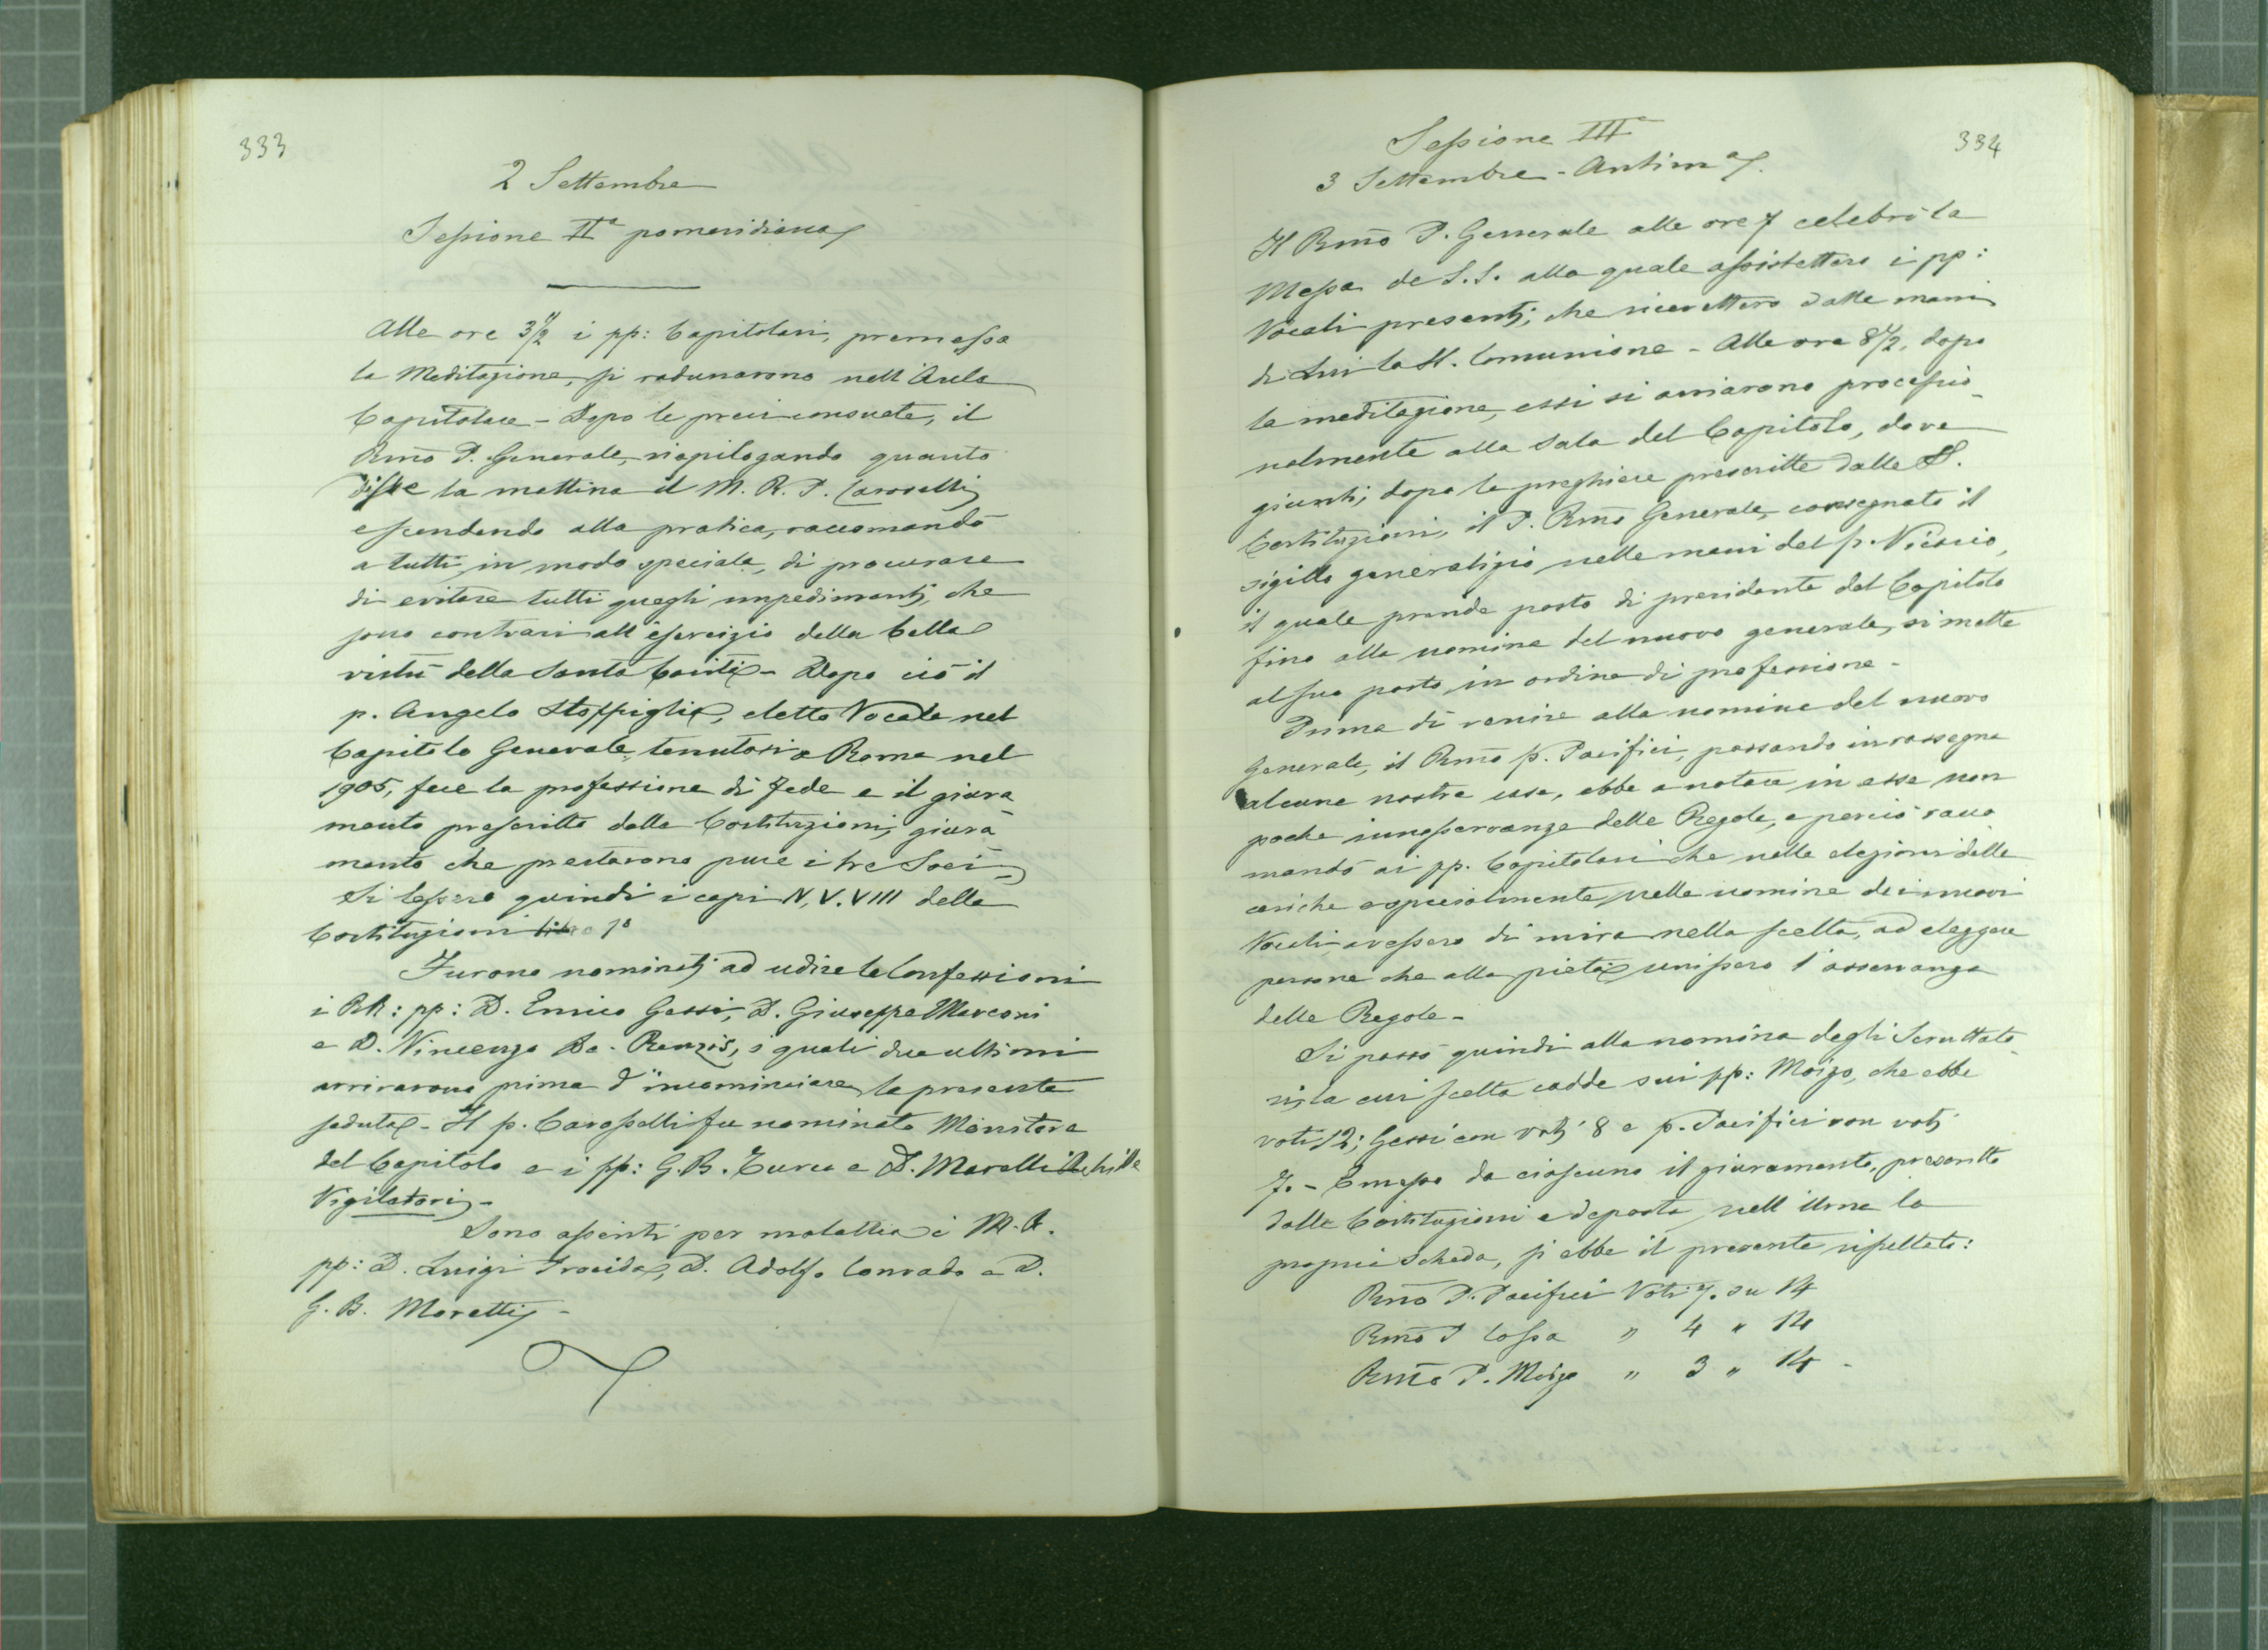 333
2 Settembre
Sessione IIª pomeridiana
Alle ore 3½ i pp: Capitolari, premessa
la Meditazione, si radunarono nell'Aula
Capitolare - Dopo le preci consuete, il
Rmo P. Generale, riepilogando quanto
disse la mattina il M. R. P. Caroselli
e scendendo alla pratica, raccomandò
a tutti in modo speciale, di procurare
di evitare tutti quegli impedimenti, che
sono contrari all'esercizio della bella
virtù della Santa Carità - Dopo ciò il
p. Angelo Stoppiglia, eletto Vocale nel
Capitolo Generale tenutosi a Roma nel
1905, fece la professione di Fede e il giura
mento prescritto dalle Costituzioni, giura
mento che prestarono pure i tre Soci -
Si lessero quindi i capi IV. V. VIII delle
Costituzioni libro 1º
Furono nominati ad udire le Confessioni
i RR: pp: D. Enrico Gessi, D. Giuseppe Marconi
e D. Vincenzo De-Renzis, i quali due ultimi
arrivarono prima d'incominciare la presente
seduta - Il p. Carosselli fu nominato Monitore
del Capitolo e i pp: G. B. Turco e D. Marelli Achille
Vigilatori -
Sono assenti per malattia i M. R.
pp: D. Luigi Procida, D. Adolfo Conrado e D.
G. B. Moretti -
334
Sessione IIIª
3 Settembre - Antimª
Il Rmo P. Generale alle ore 7 celebrò la
Messa de S. S. alla quale assistettero i pp:
Vocali presenti, che ricevettero dalle mani
di Lui la S. Comunione - Alle ore 8½, dopo
la meditazione, essi si avviarono processio-
nalmente alla sala del Capitolo, dove
giunti, dopo le preghiere prescritte dalle S.
Costituzioni, il P. Rmo Generale, consegnato il
sigillo generalizio nelle mani del p. Vicario,
il quale prende posto di presidente del Capitolo
fino alla nomina del nuovo generale, si mette
al suo posto in ordine di professione -
Prima di venire alla nomina del nuovo
Generale, il Rmo p. Pacifici, passando in rassegna
alcune nostre case, ebbe a notare in esse non
poche innosservanze delle Regole, e perciò racco
mandò ai pp. Capitolari che nelle elezioni delle
cariche e specialmente nella nomina dei nuovi
Vocali, avessero di mira nella scelta, ad eleggere
persone che alla pietà unissero l'osservanza
delle Regole -
Si passò quindi alla nomina degli Scruttato-
ri, la cui scelta cadde sui pp: Moizo, che ebbe
voti 12; Gessi con voti 8 e p. Pacifici con voti
7. - Emesso da ciascuno il giuramento, prescritto
dalle Costituzioni e deposta nell'Urna la
propria Scheda, si ebbe il presente risultato:
Rmo P. Pacifici Voti 7. su 14
Rmo P Cossa " 4 " 14
Rmo P. Moizo " 3 " 14 -